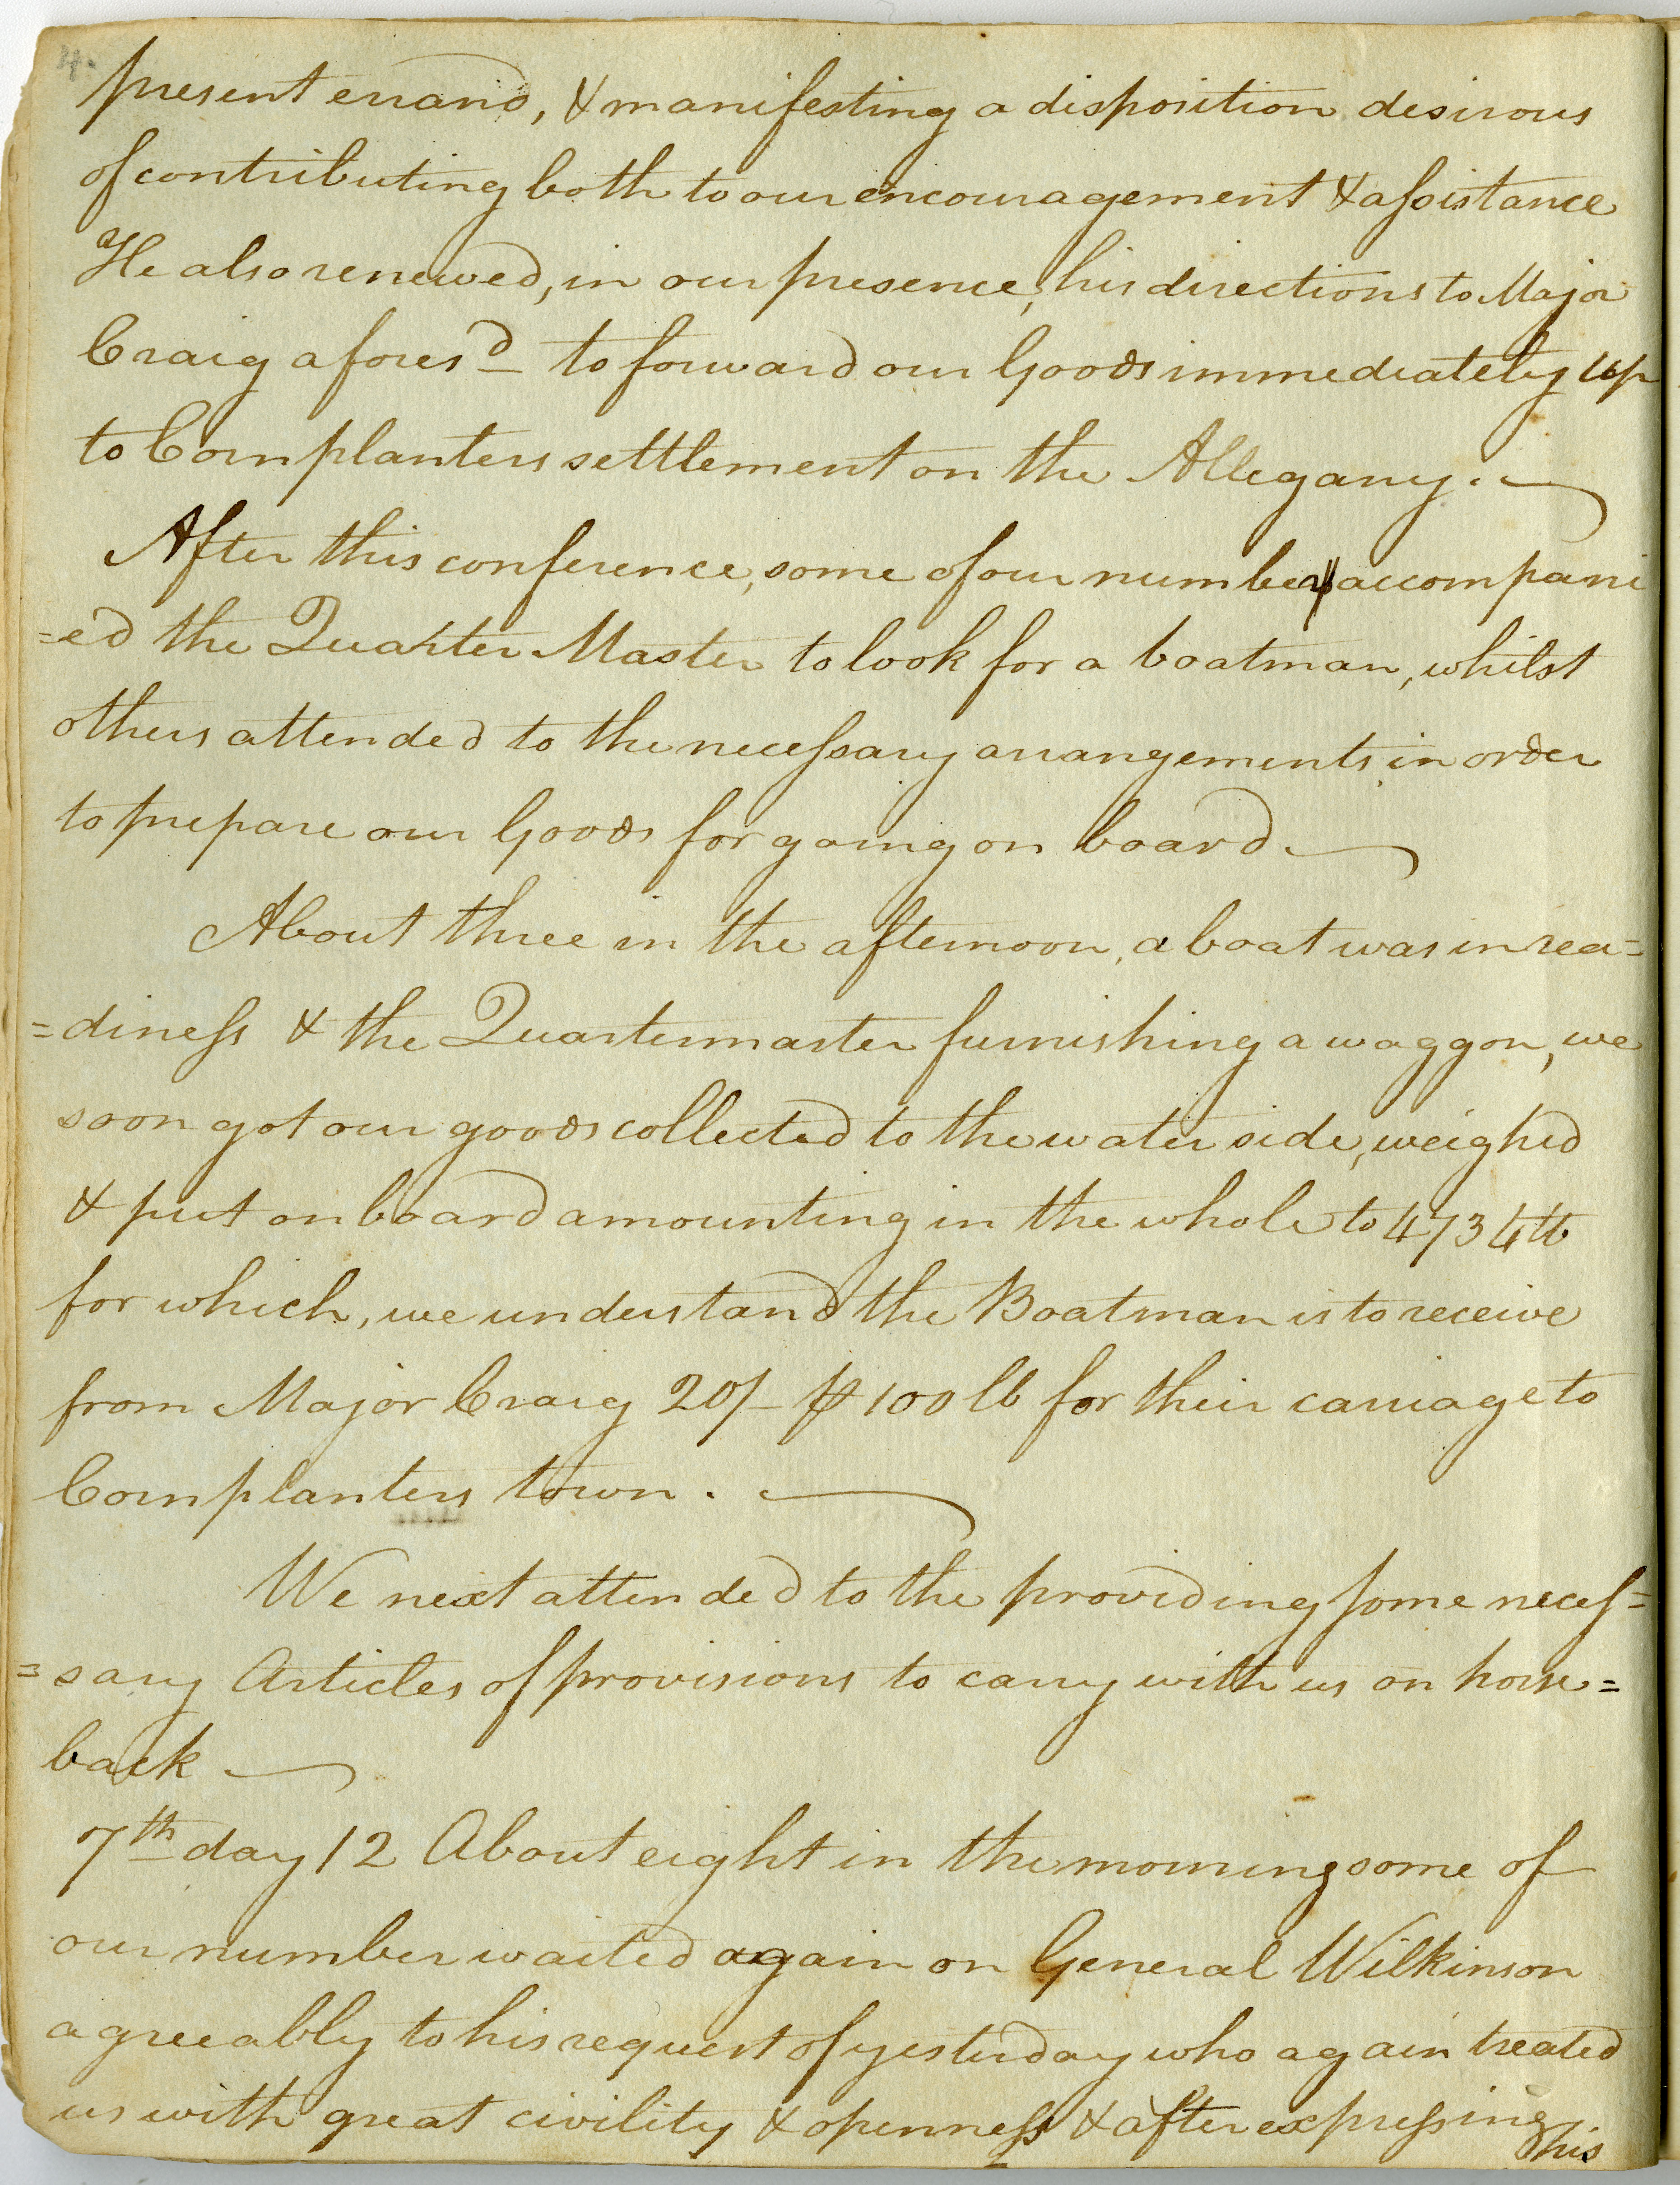 4.
present errand, & manifesting a disposition desirous
of contributing both to our encouragement & assistance
He also renewed, in our presence, his directions to Major
Craig afores^d to forward our Goods immediately up
to Cornplanters settlement on the Allegany.
After this conference, some of our number accompani
=ed the Quarter Master to look for a boatman, whilst
others attended to the necessary arrangements in order
to prepare our Goods for going on board.
About three in the afternoon, a boat was in rea=
=diness & the Quartermaster furnishing a waggon, we
soon got our goods collected to the water side, weighed
& put on board amounting in the whole to 4734 lb
for which, we understand the Boatman is to receive
from Major Craig 20/- ⅌ 100 lb for their carriage to
Cornplanters town.
We next attended to the providing some neces=
=sary Articles of provisions to carry with us on horse=
back
7th day 12 About eight in the morning some of
our number waited again on General Wilkinson
agreeably to his request of yesterday who again treated
us with great civility & openness & after expressing
his